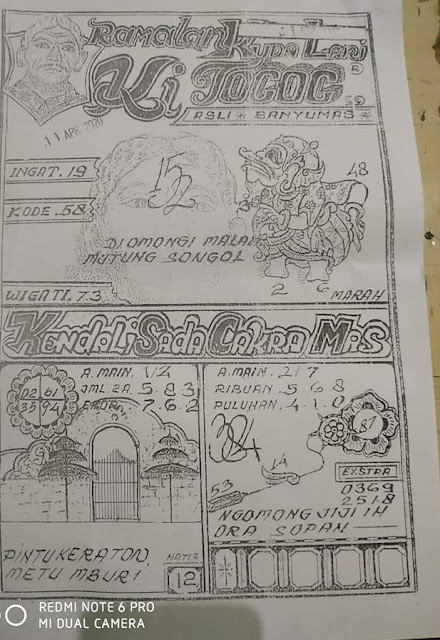 Ramalan Kuda Lari
Ki Togog
R
ASLI * BANYUMAS *
11 APR
INGAT. 19
KODE. 58
WIGATI. 73
152
48
DIOMONGI MALAH
MUTUNG SONGOL
2 6
MARAH
Kendali Sada Cakra Mas
A. MAIN. 1/2
JML 2A. 5. 8 3
EKOR. 7. 6. 2
02 61
35 94
PINTU KERATON,
METU MBURI
HATI2
12
A. MAIN. 2/7
RIBUAN. 5. 6. 8
PULUHAN. 4. 1. 0
324
87
14
53
EXSTRA
0369
2518
NGOMONG JIJI IH
ORA SOPAN
REDMI NOTE 6 PRO
MI DUAL CAMERA